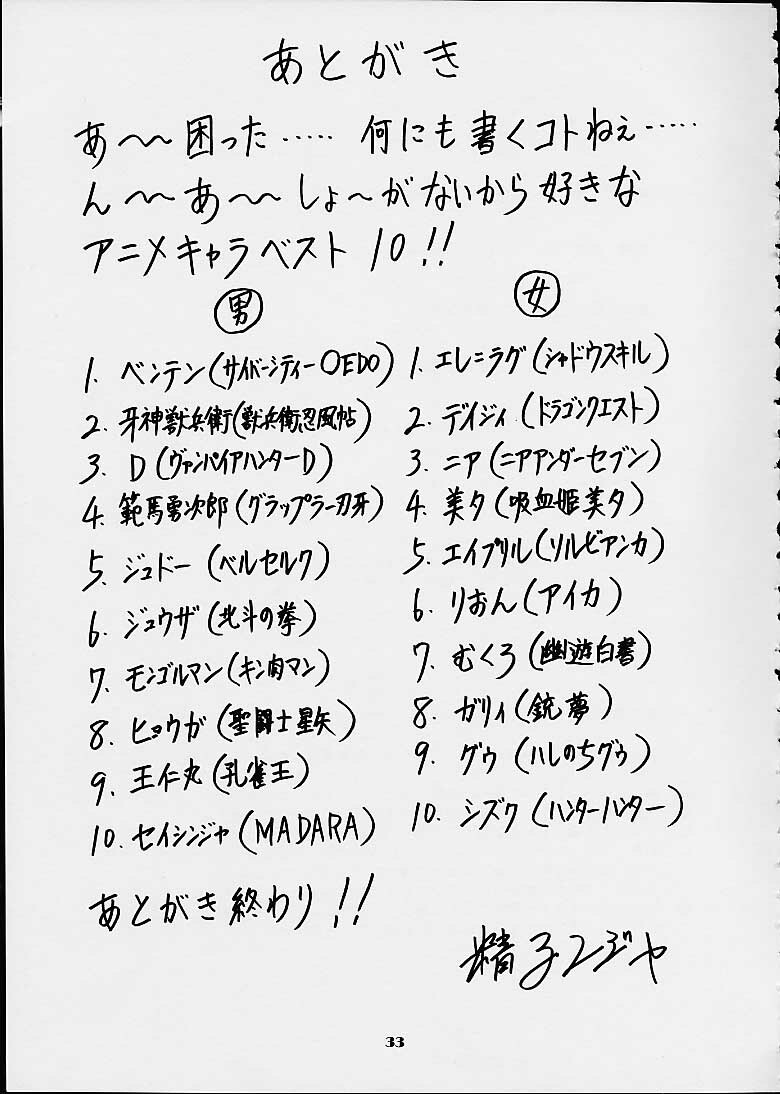 あとがき
あ〜〜困った‥‥‥ 何にも書くコトねぇ‥‥‥
ん〜〜あ〜〜しょ〜がないから好きな
アニメキャラベスト10!!
男
1. ベンテン(サイバーシティーOEDO)
2. 牙神獣兵衛(獣兵衛忍風帖)
3. D(ヴァンパイアハンターD)
4. 範馬勇次郎(グラップラー刃牙)
5. ジュドー(ベルセルク)
6. ジュウザ(北斗の拳)
7. モンゴルマン(キン肉マン)
8. ヒョウガ(聖闘士星矢)
9. 王仁丸(孔雀王)
10. セイシンジャ(MADARA)
女
1. エレ=ラグ(シャドウスキル)
2. デイジィ(ドラゴンクエスト)
3. ニア(ニアアンダーセブン)
4. 美夕(吸血姫美夕)
5. エイプリル(ソルビアンカ)
6. りおん(アイカ)
7. むくろ(幽遊白書)
8. ガリィ(銃夢)
9. グゥ(ハレのちグゥ)
10. シズク(ハンターハンター)
あとがき終わり!!
精子ンジャ
33